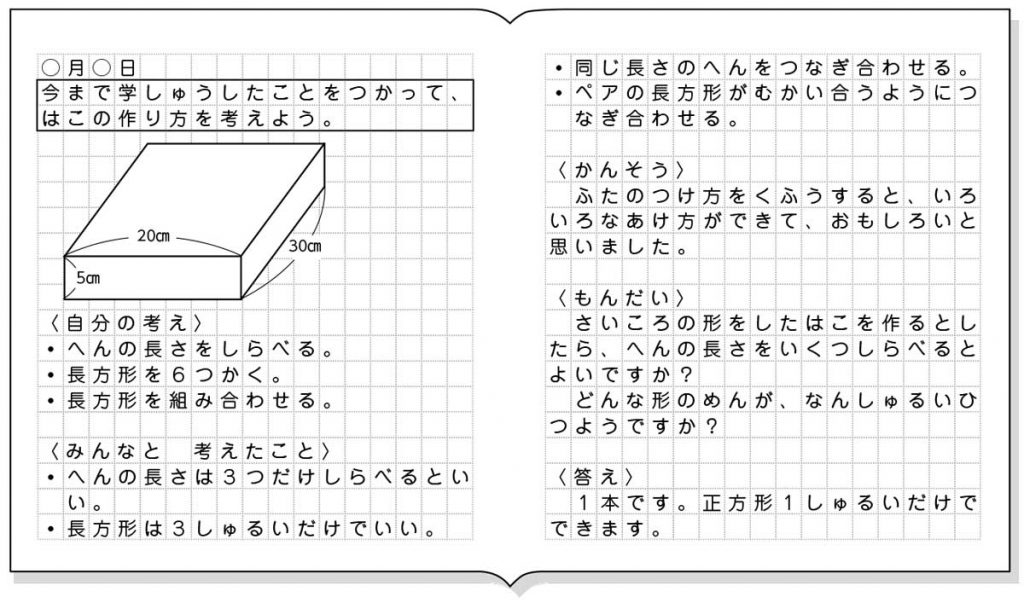 ○月○日
今まで学しゅうしたことをつかって、
はこの作り方を考えよう。
20㎝
30㎝
5㎝
〈自分の考え〉
・へんの長さをしらべる。
・長方形を6つかく。
・長方形を組み合わせる。
〈みんなと　考えたこと〉
・へんの長さは3つだけしらべるとい
い。
・長方形は3しゅるいだけでいい。
・同じ長さのへんをつなぎ合わせる。
・ペアの長方形がむかい合うようにつ
なぎ合わせる。
〈かんそう〉
ふたのつけ方をくふうすると、いろ
いろなあけ方ができて、おもしろいと
思いました。
〈もんだい〉
さいころの形をしたはこを作るとし
たら、へんの長さをいくつしらべると
よいですか？
どんな形のめんが、なんしゅるいひ
つようですか？
〈答え〉
1本です。正方形1しゅるいだけで
できます。